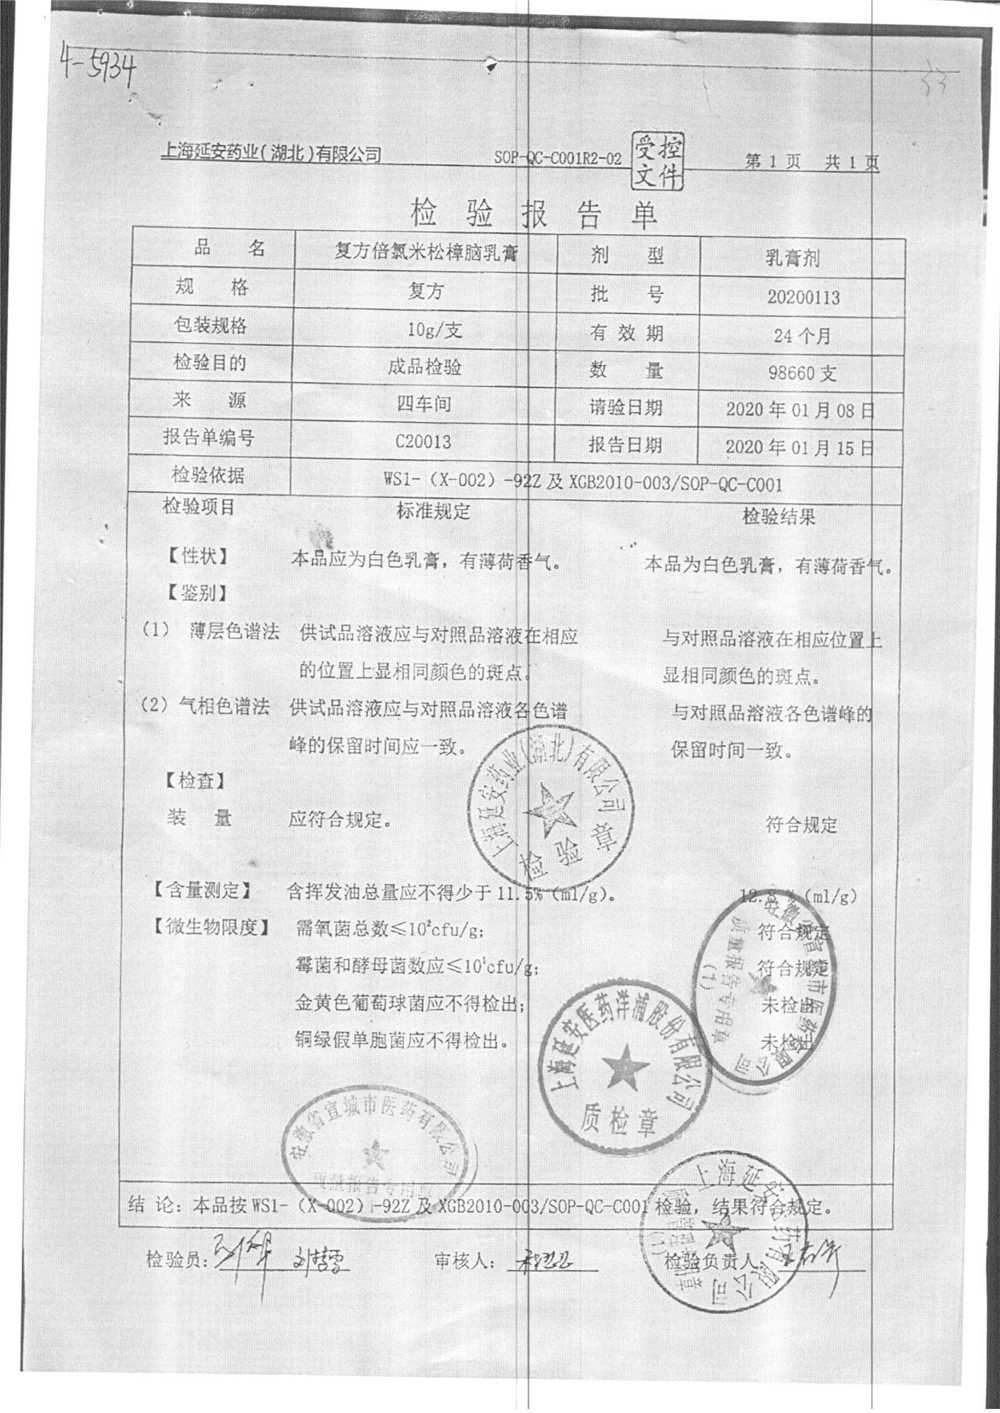 4-5934
33
上海延安药业(湖北)有限公司 SOP-QC-C001R2-02 受控文件 第 1 页 共 1 页
检 验 报 告 单
品 名 复方倍氯米松樟脑乳膏 剂 型 乳膏剂
规 格 复方 批 号 20200113
包装规格 10g/支 有 效 期 24 个月
检验目的 成品检验 数 量 98660 支
来 源 四车间 请验日期 2020 年 01 月 08 日
报告单编号 C20013 报告日期 2020 年 01 月 15 日
检验依据 WS1-(X-002)-92Z 及 XGB2010-003/SOP-QC-C001
检验项目 标准规定 检验结果
【性状】 本品应为白色乳膏，有薄荷香气。 本品为白色乳膏，有薄荷香气。
【鉴别】
(1) 薄层色谱法 供试品溶液应与对照品溶液在相应 与对照品溶液在相应位置上
的位置上显相同颜色的斑点。 显相同颜色的斑点。
(2) 气相色谱法 供试品溶液应与对照品溶液各色谱 与对照品溶液各色谱峰的
峰的保留时间应一致。 保留时间一致。
【检查】
装 量 应符合规定。 符合规定
【含量测定】 含挥发油总量应不得少于 11.5%(ml/g)。 12.8%(ml/g)
【微生物限度】 需氧菌总数≤10²cfu/g; 符合规定
霉菌和酵母菌数应≤10¹cfu/g; 符合规定
金黄色葡萄球菌应不得检出; 未检出
铜绿假单胞菌应不得检出。 未检出
上海延安药业(湖北)有限公司
检验章
安徽省宣城市医药有限公司
质量报告专用章
(1)
上海延安医药洋浦股份有限公司
质检章
安徽省宣城市医药有限公司
质量报告专用章
结 论: 本品按 WS1-(X-002)-92Z 及 XGB2010-003/SOP-QC-C001 检验，结果符合规定。
上海延安医药有限公司
检验员: 审核人: 检验负责人: